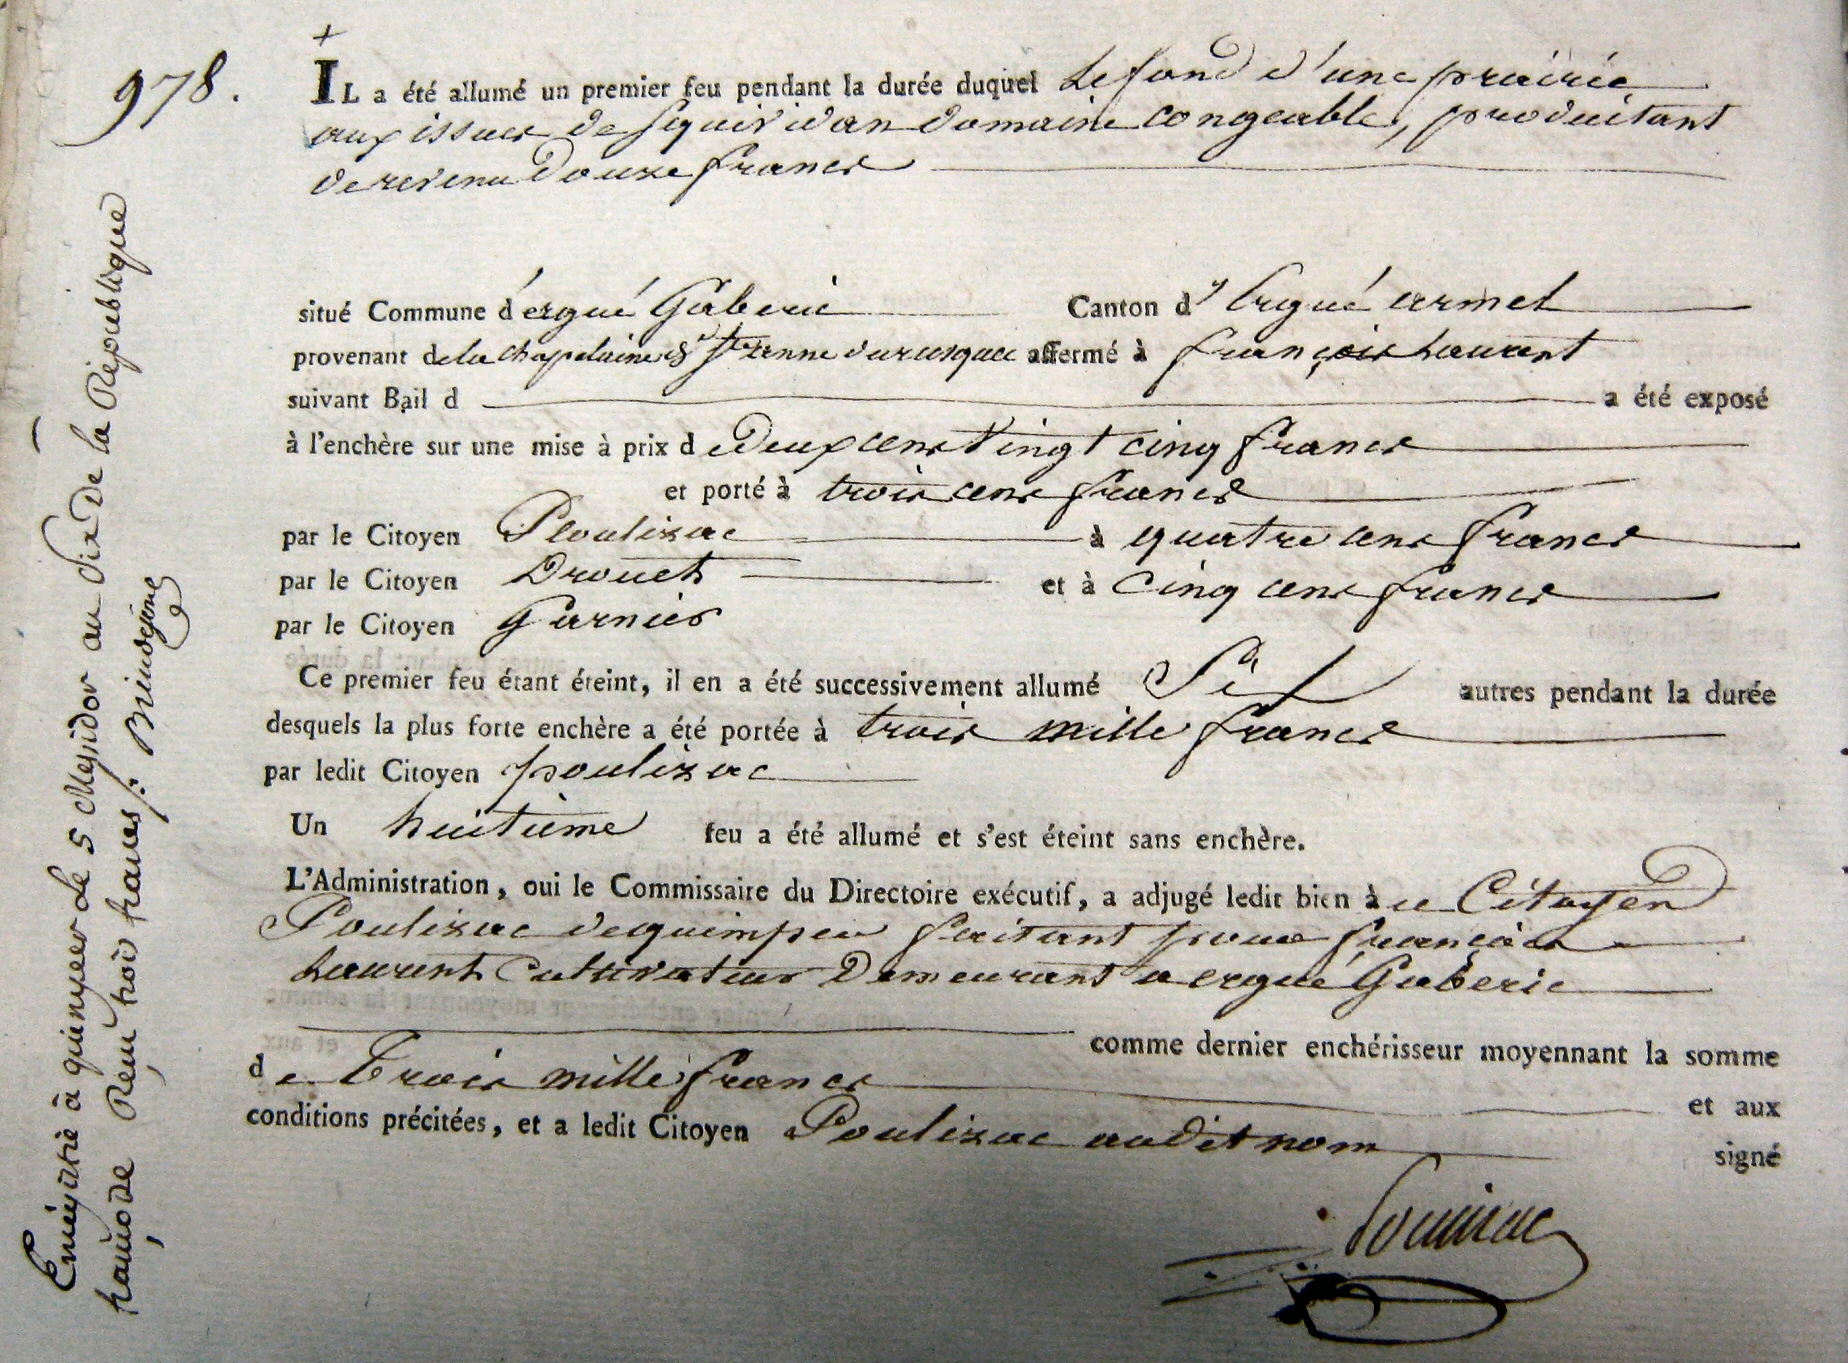 978.
+
IL a été allumé un premier feu pendant la durée duquel Le fond d'une prairie
aux issues de Squividan domaine congeable, produisant
de revenu Douze francs
situé Commune d'ergué Gaberic Canton d' Ergué armel
provenant de la chapelainie affermé à françois Laurent
suivant Bail d a été exposé
à l'enchère sur une mise à prix de Deux cens vingt cinq francs
et porté à trois cens francs
par le Citoyen Poulizac à quatre cens francs
par le Citoyen Drouet et à Cinq cens francs
par le Citoyen Garnier
Ce premier feu étant éteint, il en a été successivement allumé Six autres pendant la durée
desquels la plus forte enchère a été portée à trois mille francs
par ledit Citoyen poulizac
Un huitième feu a été allumé et s'est éteint sans enchère.
L'Administration, oui le Commissaire du Directoire exécutif, a adjugé ledit bien à ce Citoyen
Poulizac de quimper faisant pour françois
Laurent Cultivateur Demeurant a ergué Gaberic
comme dernier enchérisseur moyennant la somme
de Trois mille francs et aux
conditions précitées, et a ledit Citoyen Poulizac audit nom signé
Poulizac
Enregistré à quimper Le 5 Messidor an Six De la République
française Reçu trois francs